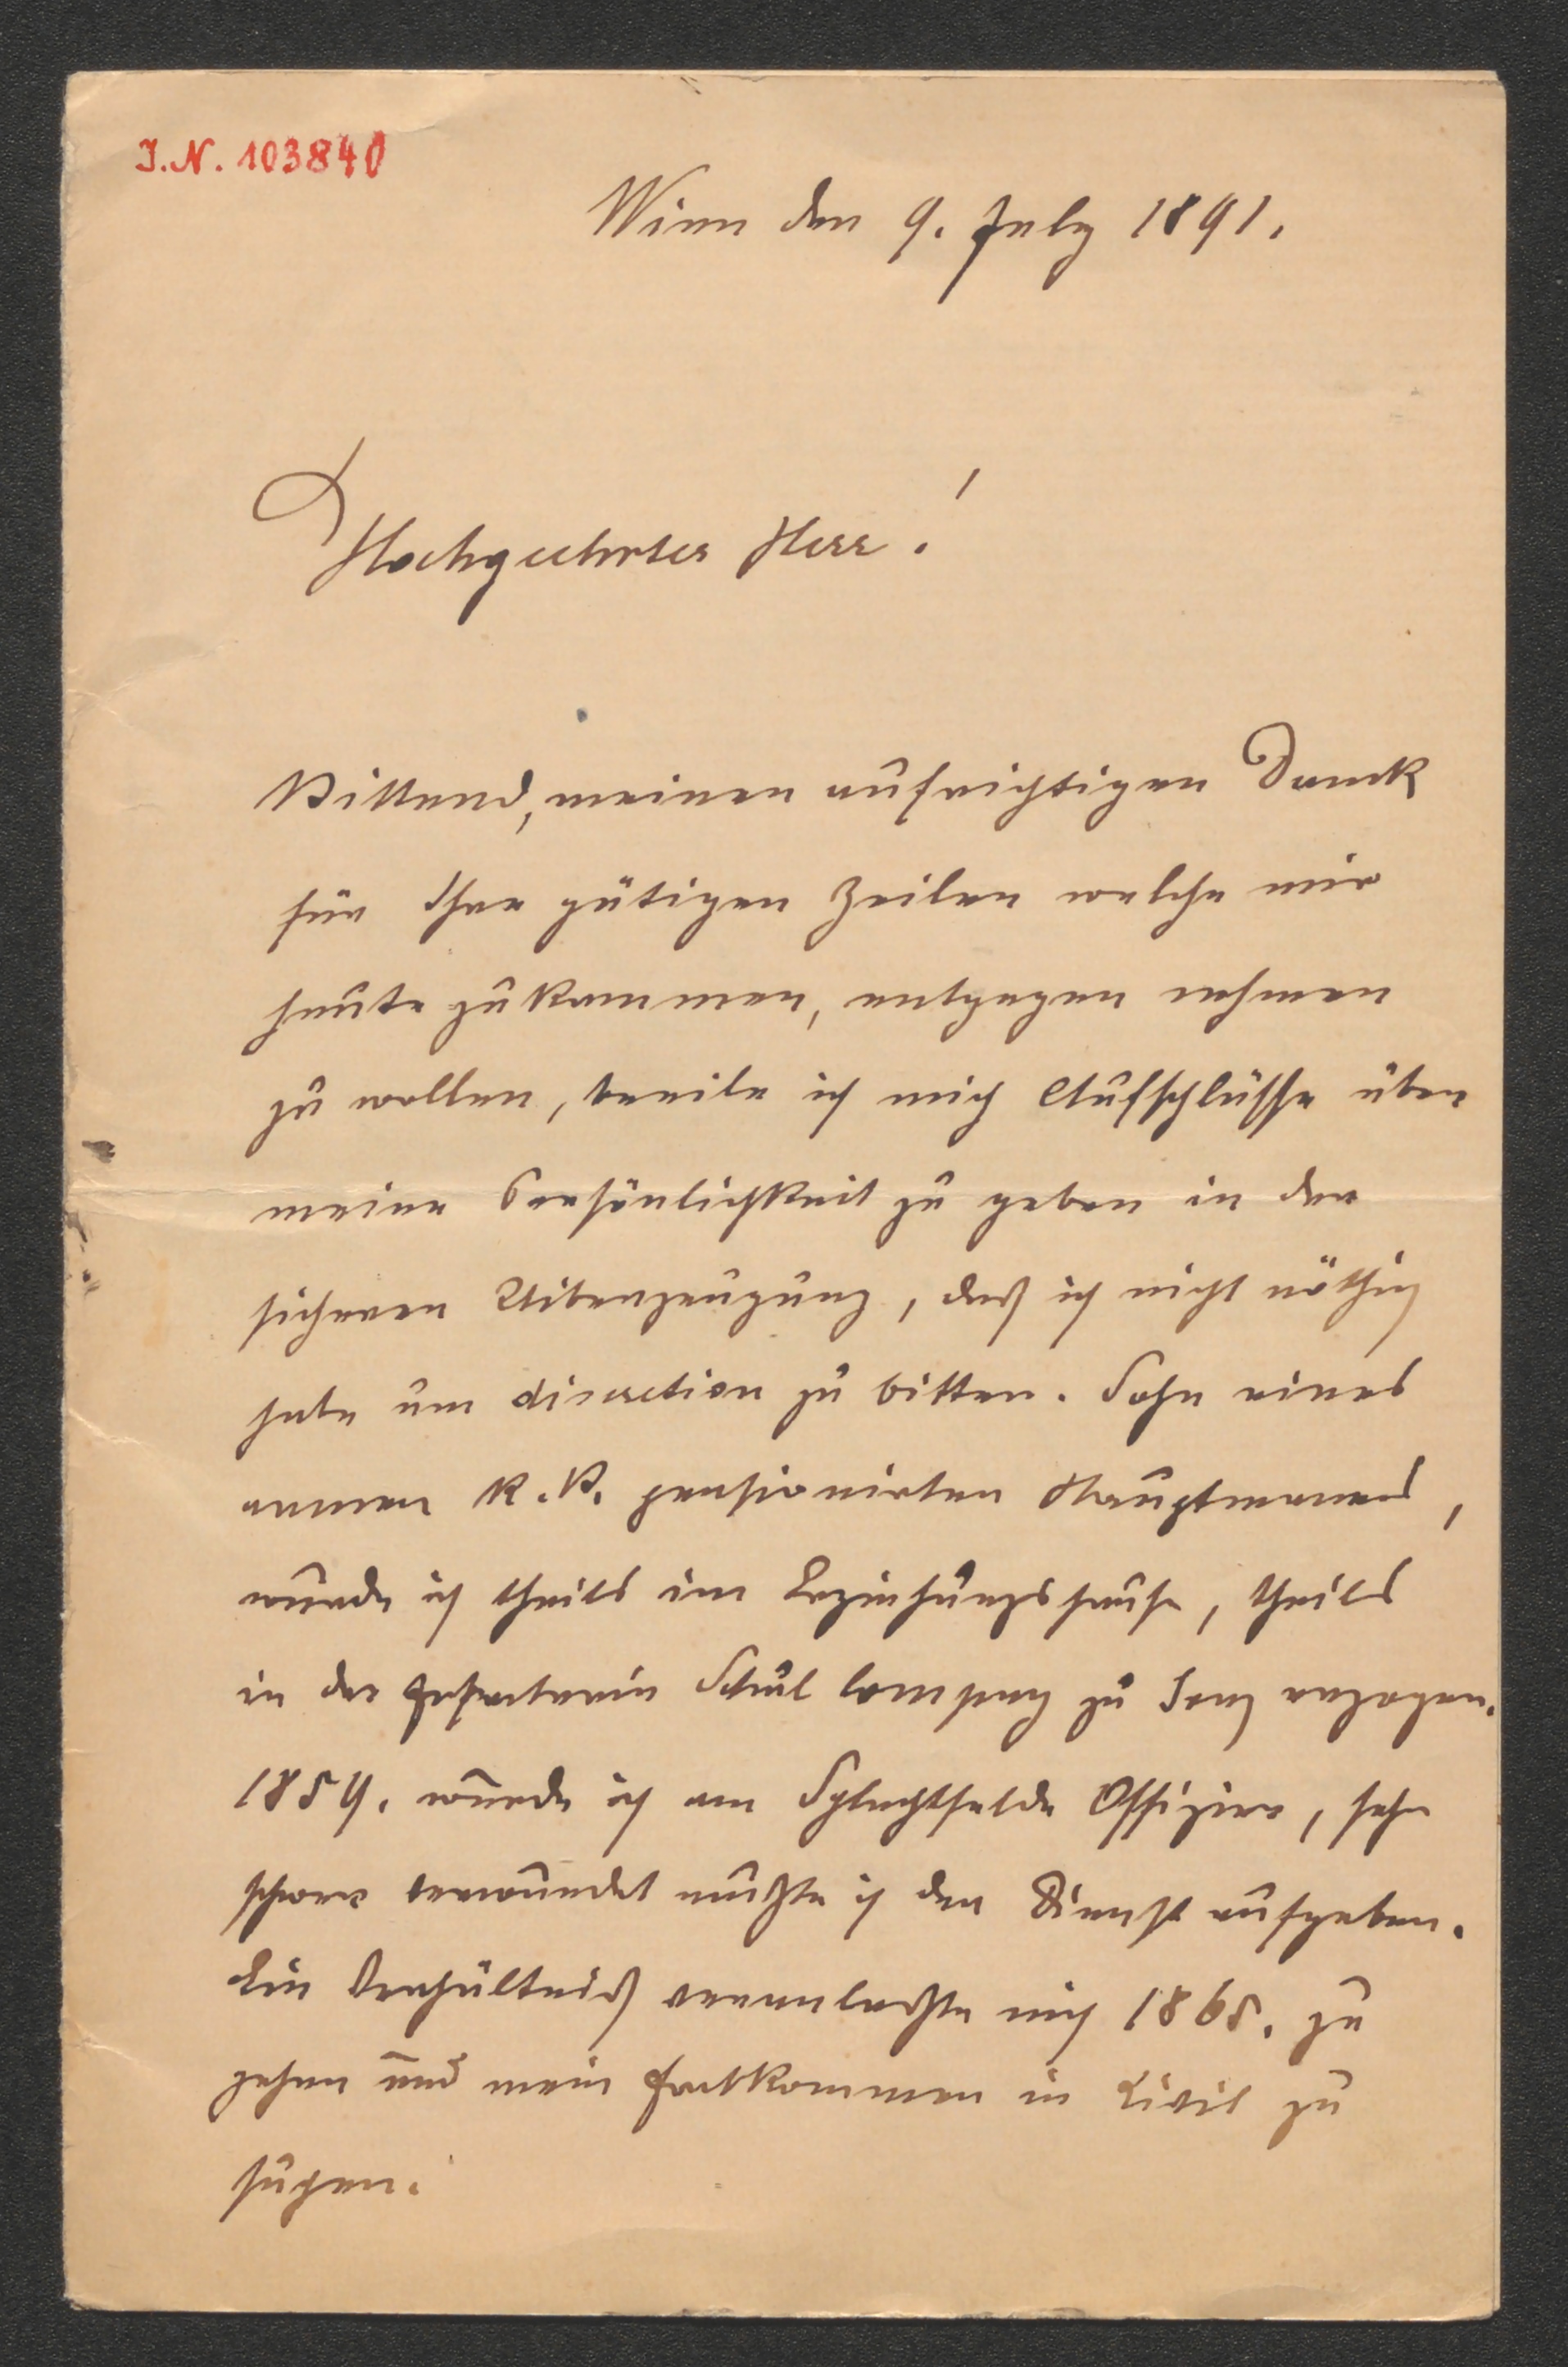 I.N. 103840
Wien den 9. July 1891.
Hochgeehrter Herr!
Bittend, meinen aufrichtigen Dank
für Ihre gütigen Zeilen welche mir
heute zukammen, entgegen nehmen
zu wollen, beeile ich mich Aufschlüsse über
meine Persönlichkeit zu geben in der
sicheren Uiberzeugung, daß ich nicht nöthig
habe um discretion zu bitten. Sohn eines
armen k.k. pensionirten Hauptmanns,
wurde ich theils im Erziehungshause, theils
in der Schul Compagnie zu erzogen.
1859. wurde ich am Schlachtfelde Offizier, sehr
schwer verwundet mußte ich den Dienst aufgeben.
Ein Verhältniß veranlaßte mich 1868. zu
gehen und mein Fortkommen in Civil zu
suchen.